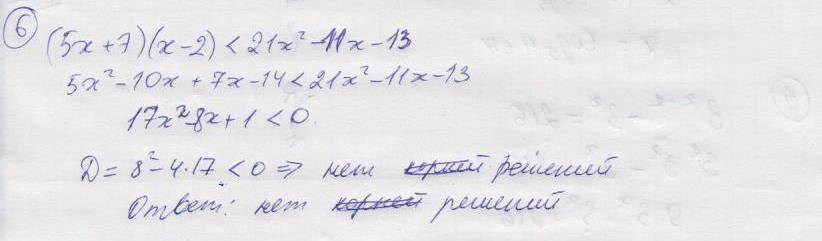 6
(5x+7)(x-2) < 21x² - 11x - 13
5x² - 10x + 7x - 14 < 21x² - 11x - 13
17x² - 8x + 1 < 0.
D = 8² - 4·17 < 0 ⇒ нет корней решений
Ответ: нет корней решений